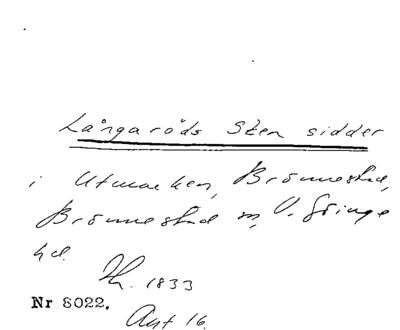 Långaröds Sten sidder
i Utmarken, Brönnestad,
Brönnestad sn, V. Göinge
hd.
Th. 1833
Nr 8022.
Aut 16.